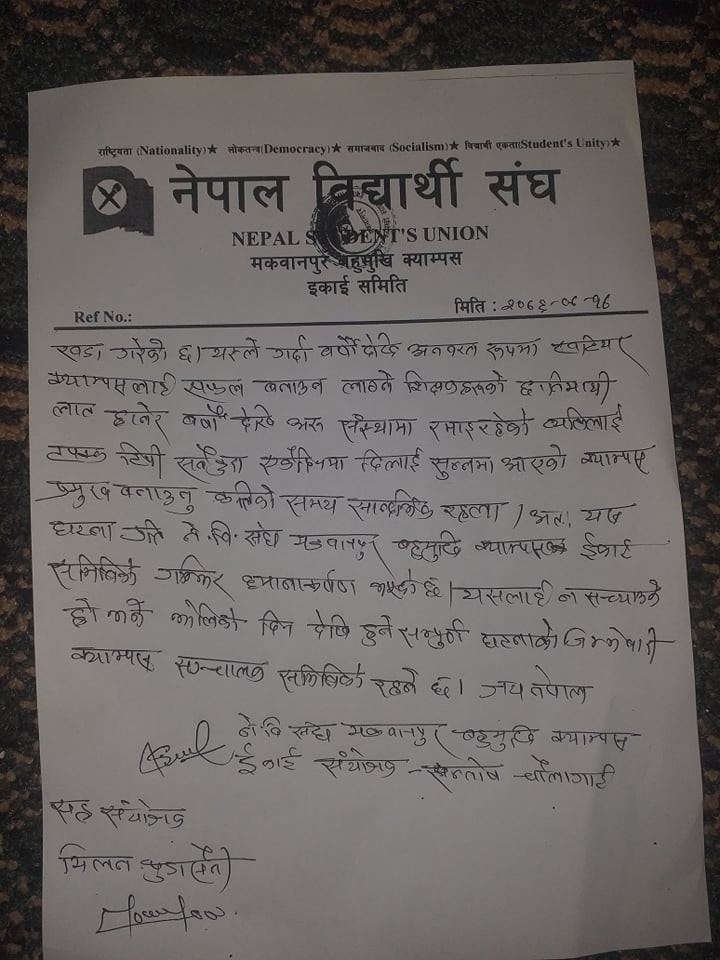 राष्ट्रियता (Nationality)★ लोकतन्त्र(Democracy)★ समाजबाद (Socialism)★ विद्यार्थी एकता(Student's Unity)★
नेपाल विद्यार्थी संघ
NEPAL STUDENT'S UNION
मकवानपुर बहुमुखि क्याम्पस
इकाई समिति
मिति : २०७६-०८-१६
Ref No.:
खडा गरेको छ। यस्ले गर्दा वर्षौं देखि अनवरत रुपमा
क्याम्पसलाई सफल बनाउन लाग्ने शिक्षकहरुको छातीमाथी
लात हानेर वर्षौं देखि अरु संस्थामा रमाइरहेको व्यक्तिलाई
टिपी सबै कुरा एकैदिनमा सुन्नमा आएको क्याम्पस
प्रमुख बनाउनु कत्तिको समय सान्दर्भिक रहला । अतः यस
घटना प्रति ने.वि. संघ मकवानपुर बहुमुखि क्याम्पस ईकाई
समितिको गम्भिर ध्यानाकर्षण भएको छ। यसलाई न सच्याउने
हो भने भोलिको दिन देखि हुने सम्पूर्ण घटनाको जिम्मेवारी
क्याम्पस सञ्चालक समितिको रहने छ। जय नेपाल
ने.वि संघ मकवानपुर बहुमुखि क्याम्पस
ईकाई संयोजक - सन्तोष चौलागाई
सह संयोजक
मिलन